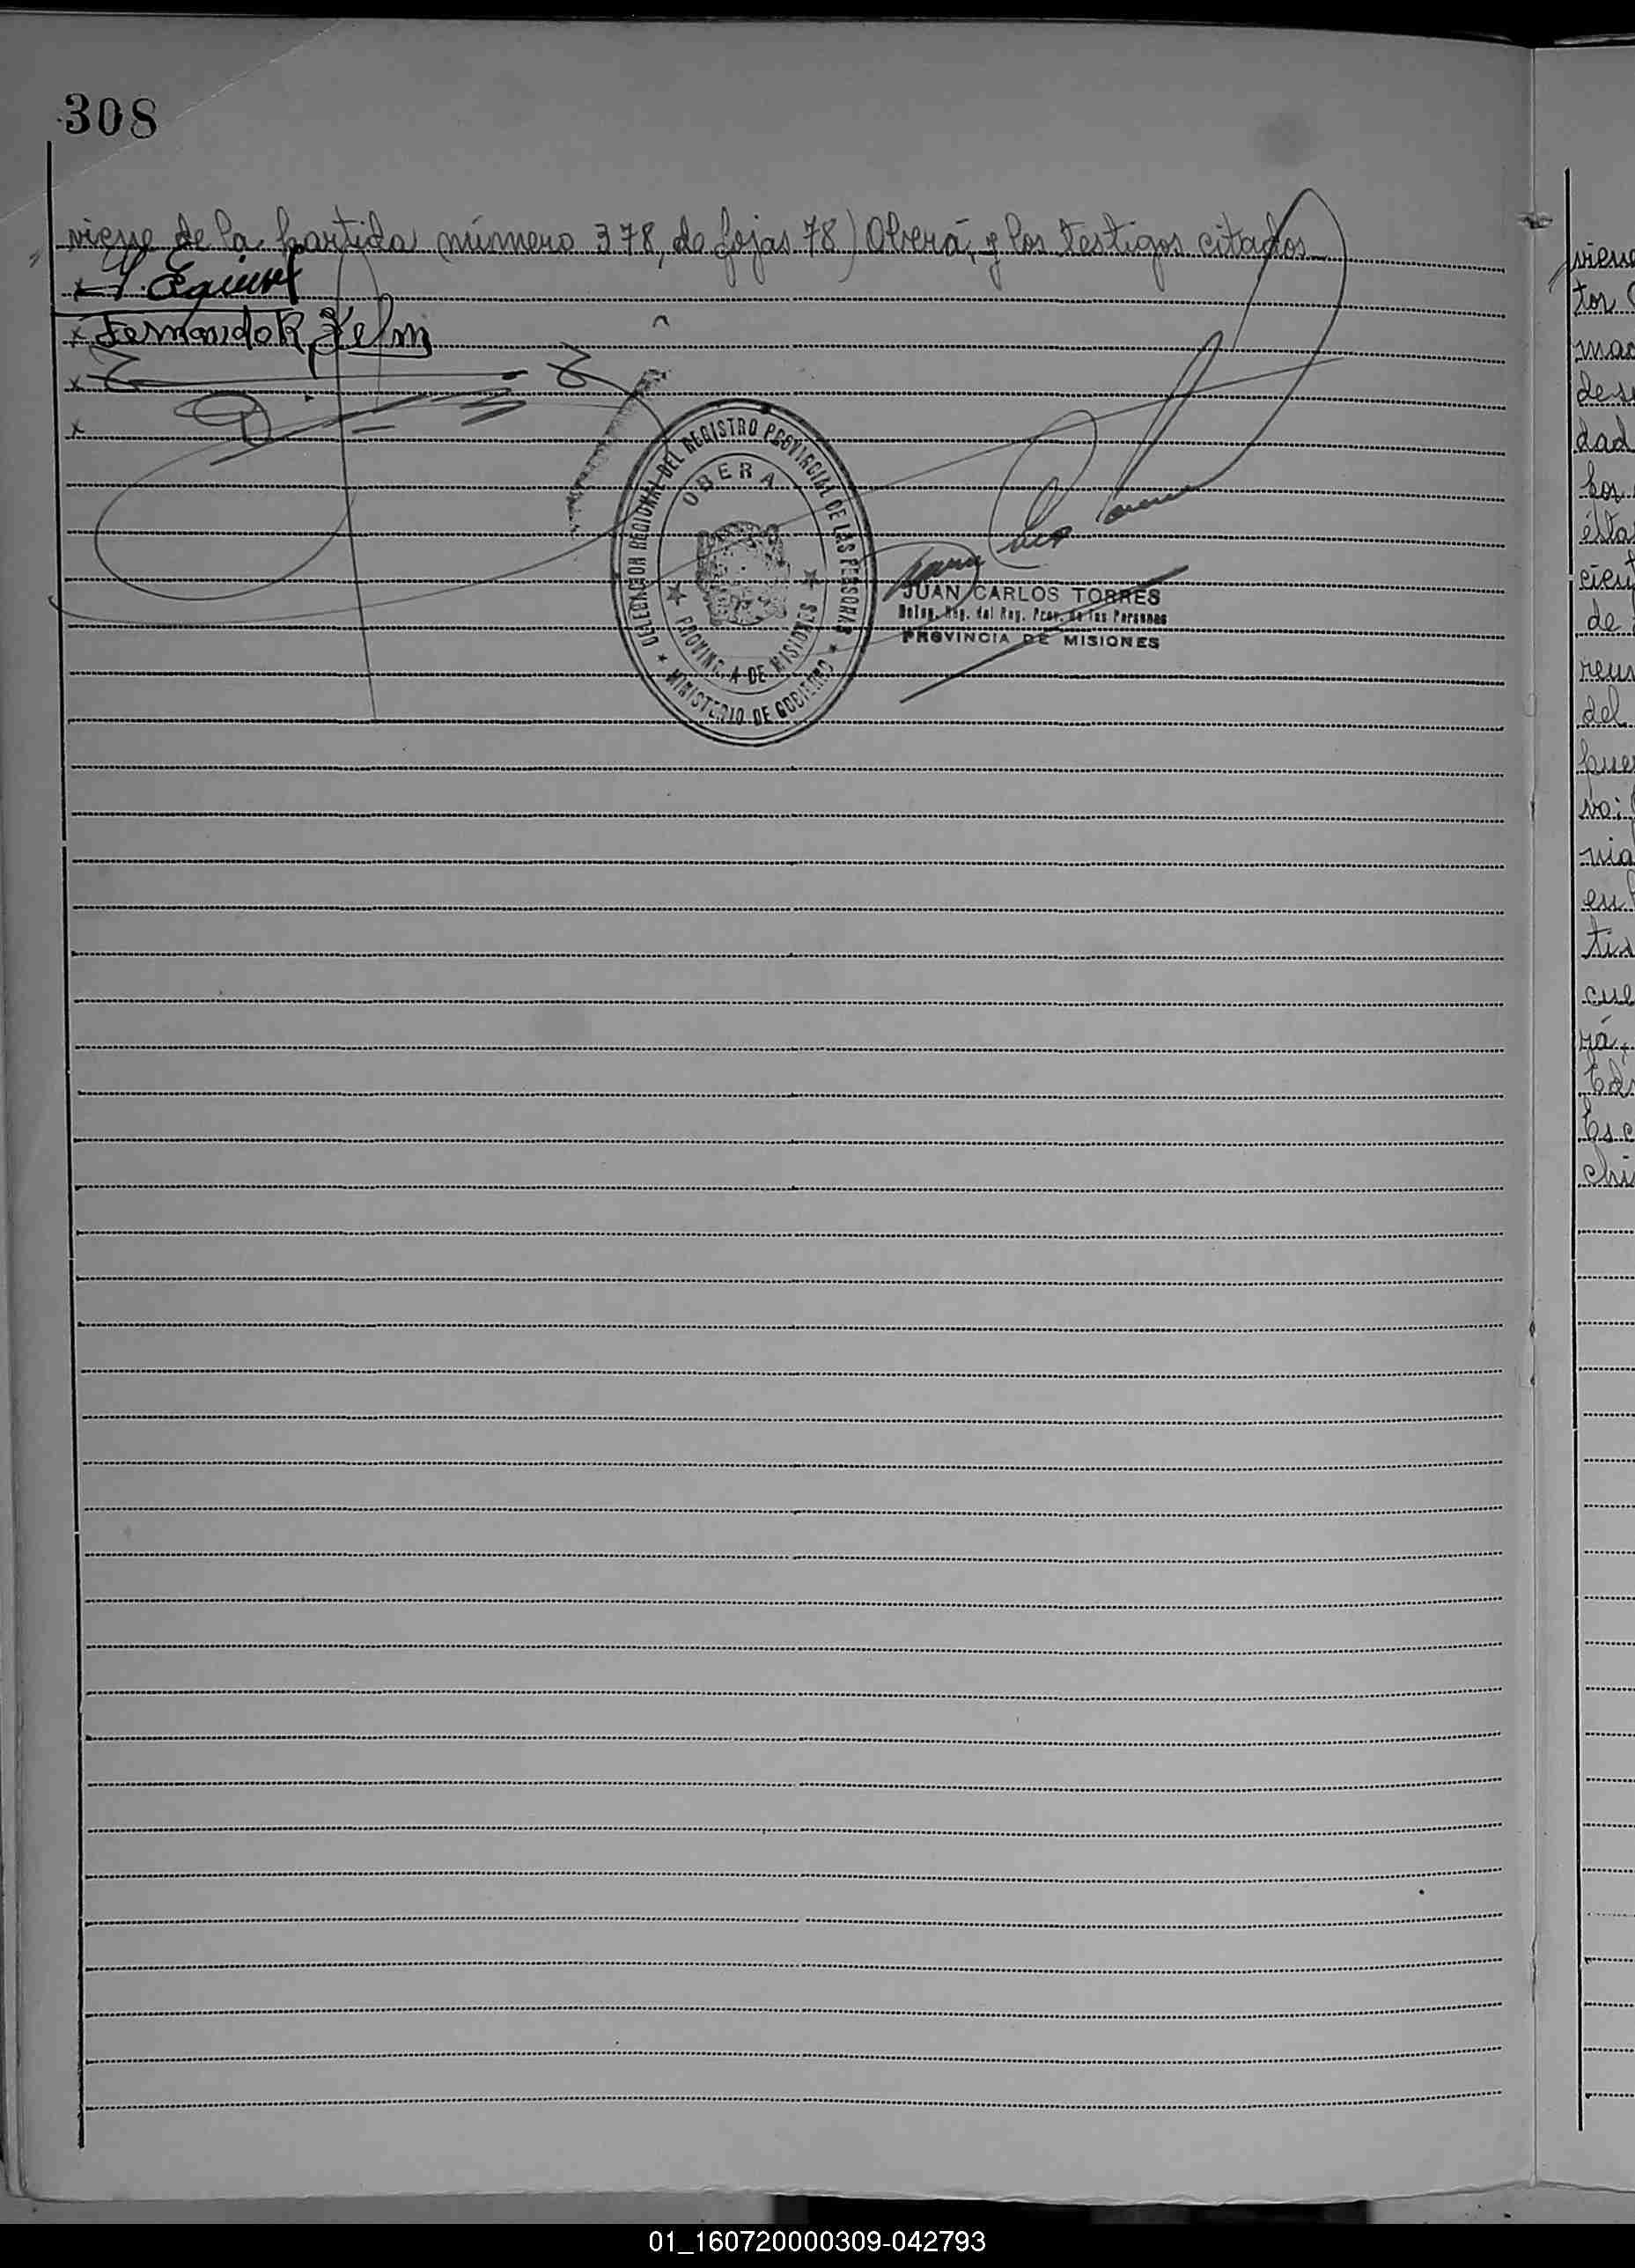 308
viene de la partida número 378, de fojas 78) Oberá, y los testigos citados
x
x Fernando R. Kelm
x
x
DELEGACION REGIONAL DEL REGISTRO PROVINCIAL DE LAS PERSONAS
OBERA
PROVINCIA DE MISIONES
MINISTERIO DE GOBIERNO
JUAN CARLOS TORRES
Deleg. Reg. del Reg. Prov. de las Personas
PROVINCIA DE MISIONES
viene
tor
mac
des
dad
por
ésta
cien
de
reun
del
pue
vo;
via
en
tis
cue
rá,
Ed
Esc
chi
01_160720000309-042793